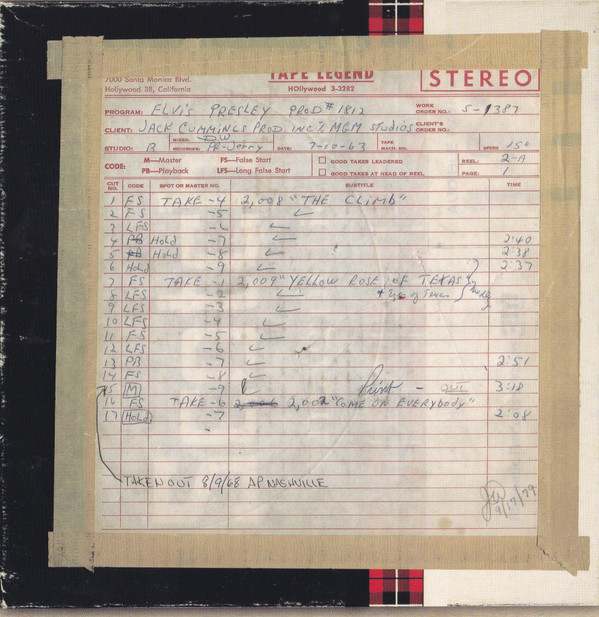 TAPE LEGEND
7000 Santa Monica Blvd.
Hollywood 38, California
HOllywood 3-3282
STEREO
PROGRAM: ELVIS PRESLEY PROD# 1812
WORK ORDER NO.: 5-1387
CLIENT: JACK CUMMINGS PROD. INC % MGM STUDIOS
CLIENT'S ORDER NO.:
STUDIO: B
MIXER: DW
RECORDER:
DATE: 7-10-63
TAPE MACH. NO.
SPEED 15"
CODE: M—Master FS—False Start
PB—Playback LFS—Long False Start
GOOD TAKES LEADERED
GOOD TAKES AT HEAD OF REEL
REEL: 2-A
PAGE: 1
CUT NO. CODE SPOT OR MASTER NO. SUBTITLE TIME
1 FS TAKE -4 2,008 "THE CLIMB"
2 FS -5
3 LFS -6
4 PB Hold -7 2:40
5 PB Hold -8 2:38
6 Hold -9 2:37
7 FS TAKE -1 2,009 "YELLOW ROSE OF TEXAS
8 LFS -2 + Eyes of Texas
9 LFS -3
10 LFS -4
11 FS -5
12 LFS -6
13 PB -7 2:51
14 FS -8
15 M -9 Print - OUT 3:18
16 FS TAKE -6 2,006 2,002 "COME ON EVERYBODY"
17 Hold -7 2:08
TAKEN OUT 8/9/68 AP NASHVILLE
9/17/79